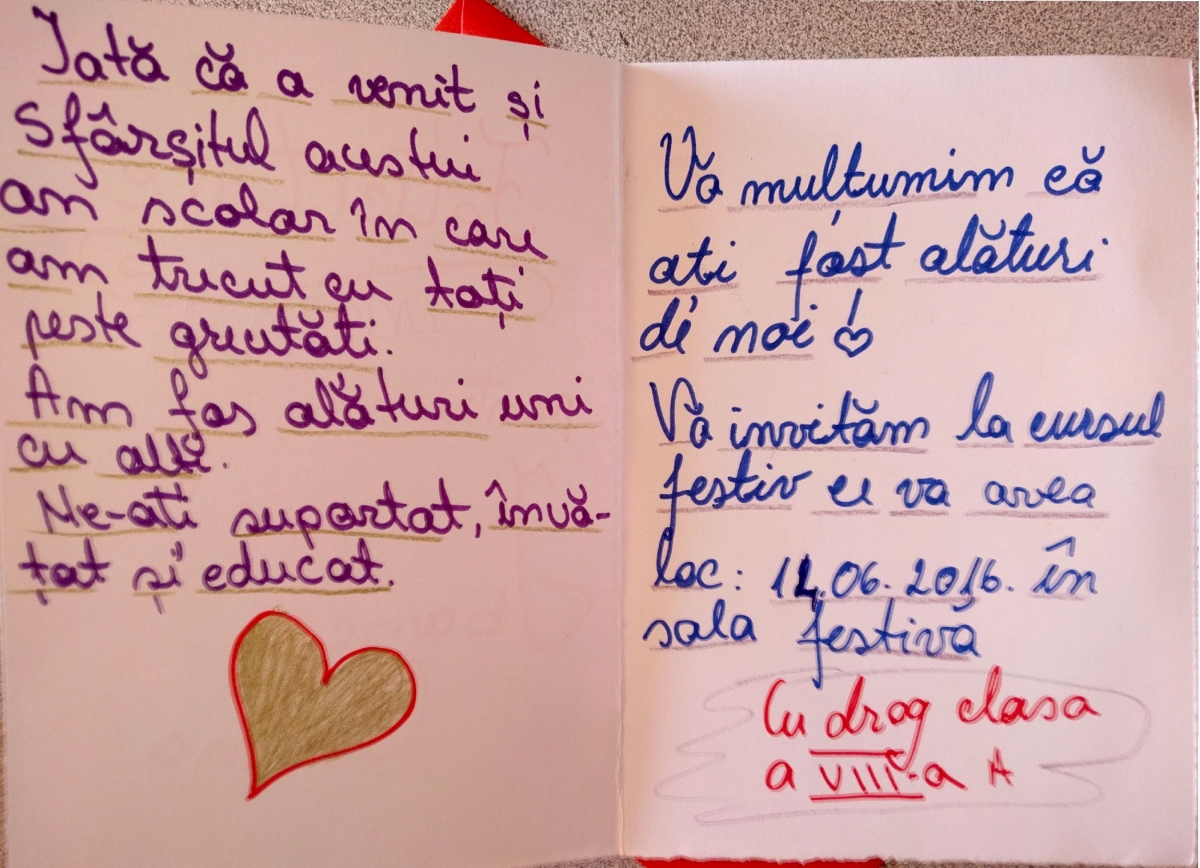 Iată că a venit și
Sfârșitul acestui
an scolar în care
am trecut cu toți
peste greutăti.
Am fos alături uni
cu alți.
Ne-ati suportat, învă-
țat și educat.
Vă mulțumim că
ati fost alături
de noi!
Vă invităm la cursul
festiv ce va avea
loc: .06.2016. în
sala festivă
Cu drag clasa
a VIII-a A